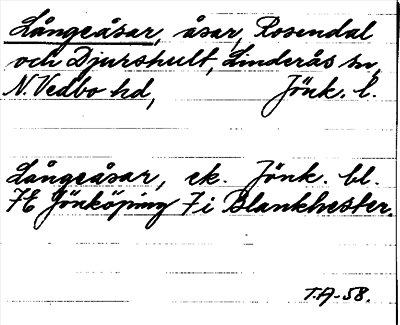 Långeåsar, åsar, Rosendal
och Djurshult, Linderås sn,
N. Vedbo hd, Jönk. l.
Långeåsar, ek. Jönk. bl.
7E Jönköping 7i Blankhester.
T.A-58.